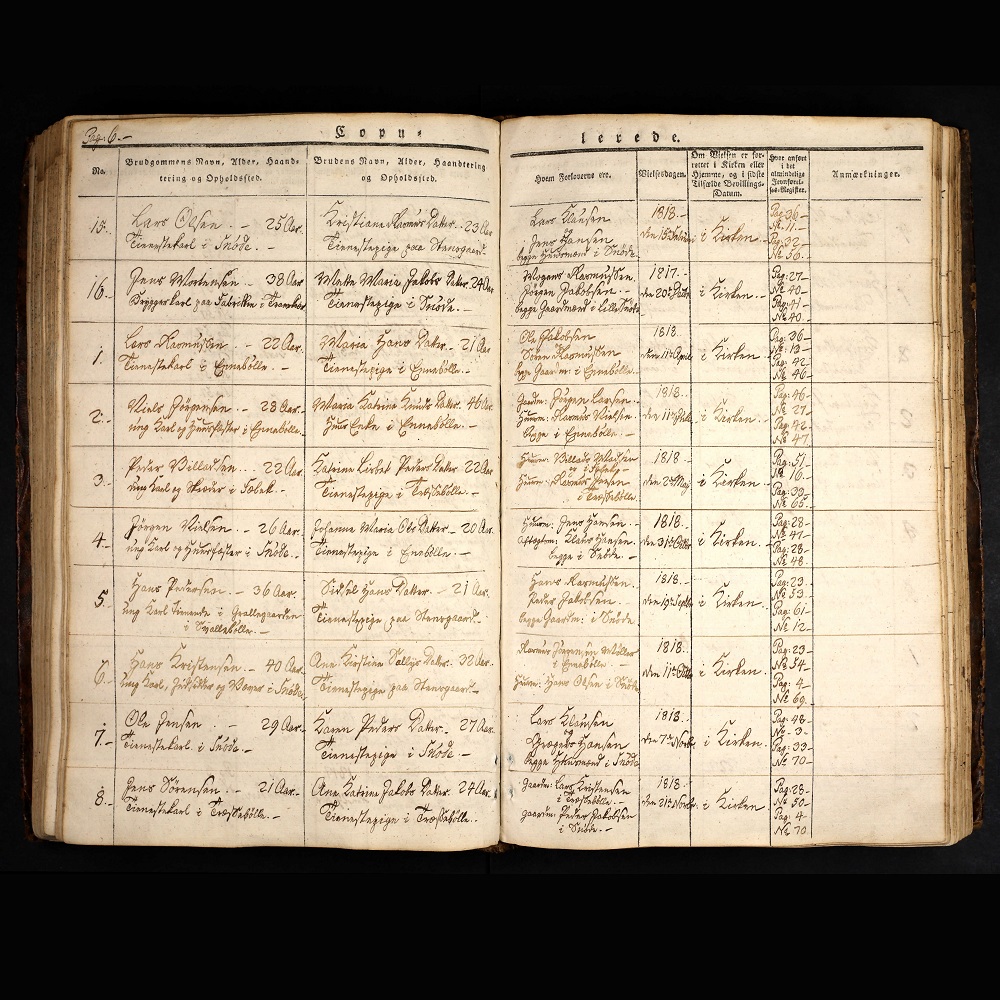 Pag: 6.-
Copu-
lerede.
No.
Brudgommens Navn, Alder, Haand-
tering og Opholdssted.
Brudens Navn, Alder, Haandtering
og Opholdssted.
Hvem Forloverne ere.
Vielsesdagen.
Om Vielsen er for-
rettet i Kirken eller
Hjemme, og i sidste
Tilfælde Bevillings-
Datum.
Hvor anført
i det
almindelige
Jevnførel-
ses-Register.
Anmærkninger.
15.
Lars Olsen. - 25 Aar.
Tienestekarl i Snöde. -
Kristiane Rasmus Datter. - 23 Aar.
Tienestepige paa Steensgaard
Lars Klausen
Jens Hansen
begge Huusmænd i Snöde
1818. -
i Kirken. -
Pag: 36 -
No. 11. -
Pag: 32 -
No. 56. -
16.
Jens Mortensen. - 38 Aar
Bryggerkarl paa Fabrikken i Tranekær
Mette Maria Jakobs Datter. 24 Aar
Tienestepige i Snöde. -
Mogens Rasmussen
Jörgen Jakobsen. -
begge Gaardmænd i Lille Snöde
1817. -
i Kirken. -
Pag: 27 -
No. 40 -
Pag: 41 -
No. 40 -
1.
Lars Rasmussen. - 22 Aar.
Tienestekarl i Ennebölle. -
Maria Hans Datter. - 21 Aar
Tienestepige i Ennebölle. -
Ole Jakobsen
Sören Rasmussen
begge Gaardm: i Ennebölle. -
1818. -
den 11te April
i Kirken. -
Pag: 36 -
No. 13 -
Pag: 42 -
No. 46 -
2.
Niels Jörgensen. - 28 Aar. -
ung Karl og Huusfæster i Ennebölle.
Maria Katrine Knuds Datter. - 46 Aar.
Huus Enke i Ennebölle. -
Gaardm: Jörgen Larsen. -
Huusm: Rasmus Nielsen. -
begge i Ennebölle. -
1818. -
i Kirken. -
Pag: 46 -
No. 27 -
Pag: 42 -
No. 47 -
3.
Peder Billadsen. - 22 Aar.
ung Karl og Skræder i Söbek. -
Katrine Lisbet Peders Datter 22 Aar
Tienestepige i Træsebölle. -
Huusm: Billads Madsen
i Söbek
Huusm: Rasmus Jensen
Træsebölle
1818 -
den 2den Maj
i Kirken. -
Pag: 51 -
No. 16 -
Pag: 39 -
No. 65 -
4.
Jörgen Nielsen. - 26 Aar.
ung Karl og Huusfæster i Snöde. -
Johanne Maria Ols Datter. - 20 Aar.
Tienestepige i Ennebölle. -
Huusm: Jens Hansen. -
Aftægtsm: Klaus Hansen.
begge i Snöde. -
1818. -
i Kirken. -
Pag: 28 -
No. 47 -
Pag: 28 -
No. 48 -
5.
Hans Pedersen. - 36 Aar.
ung Karl tienende i Grallegaarden
i Svallebölle. -
Sidsel Hans Datter. - 21 Aar.
Tienestepige paa Steensgaard. -
Hans Rasmussen.
Peder Jakobsen.
begge Gaardm: i Snöde
1818. -
den 19de Septbr
i Kirken. -
Pag: 23 -
No. 53 -
Pag: 61 -
No. 12 -
6.
Hans Kristensen. - 40 Aar.
Ane Kirstine Datter. - 32 Aar.
Tienestepige paa Steensgaard -
Rasmus Jörgensen Möller
i Ennebölle. -
Huusm: Hans Olsen i Snöde
1818. -
i Kirken. -
Pag: 23 -
No. 54 -
Pag: 4 -
No. 69. -
7.
Ole Jensen. - 29 Aar. -
Tienestekarl i Snöde. -
Karen Peders Datter. - 27 Aar.
Tienestepige i Snöde. -
Lars Klausen
og
Hansen
begge Huusmænd i Snöde
1818. -
den 7de Novbr.
i Kirken. -
Pag: 48 -
No. 9 -
Pag: 33 -
No. 70 -
8.
Jens Sörensen. - 21 Aar. -
Tienestekarl i Træsebölle. -
Ane Katrine Jakobs Datter. - 24 Aar.
Tienestepige i Træsebölle. -
Gaardm: Lars Kristensen
i Træsebölle. -
Gaardm: Peder Jakobsen
i Snöde. -
1818. -
den 21de Novbr
i Kirken -
Pag: 28 -
No. 50 -
Pag: 4 -
No. 70